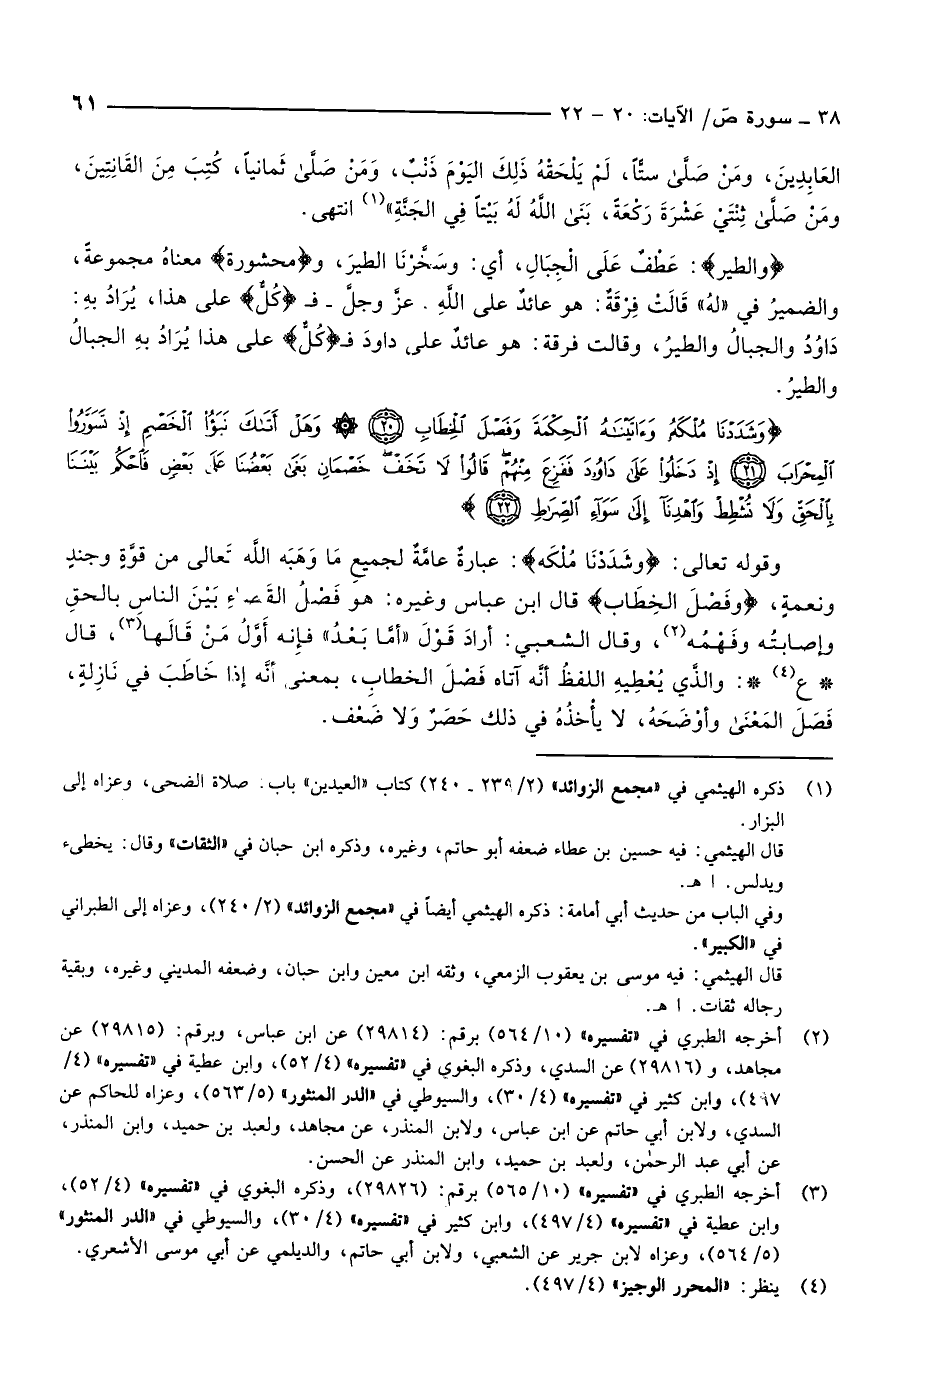 ٣٨ ـ سورة صَ/ الآيات: ٢٠ - ٢٢ ٦١
العَابِدِينَ، ومَنْ صَلَّىٰ ستًّا، لَمْ يَلْحَقْهُ ذَلِكَ اليَوْمَ ذَنْبٌ، وَمَنْ صَلَّىٰ ثَمانياً، كُتِبَ مِنَ القَانِتِينَ،
ومَنْ صَلَّىٰ ثِنْتَيْ عَشْرَةَ رَكْعَةً، بَنَىٰ اللَّهُ لَهُ بَيْتاً فِي الجَنَّةِ»(١) انتهى.
﴿والطير﴾: عَطْفٌ عَلَى الْجِبَالِ، أي: وسَخَّرْنَا الطيرَ، و﴿محشورة﴾ معناهُ مجموعةً،
والضميرُ في «لهُ» قَالَتْ فِرْقَةٌ: هو عائدٌ على اللَّهِ . عزَّ وجلَّ ـ فـ ﴿كُلٌّ﴾ على هذا، يُرَادُ بهِ:
دَاوُدُ والجبالُ والطيرُ، وقالت فرقة: هو عائدٌ على داودَ فـ﴿كُلٌّ﴾ على هذا يُرَادُ بهِ الجبالُ
والطيرُ.
﴿وَشَدَدْنَا مُلْكَهُ وَءَاتَيْنَـٰهُ ٱلْحِكْمَةَ وَفَصْلَ ٱلْخِطَابِ ٢٠ ۞ وَهَلْ أَتَىٰكَ نَبَؤُا۟ ٱلْخَصْمِ إِذْ تَسَوَّرُوا۟
ٱلْمِحْرَابَ ٢١ إِذْ دَخَلُوا۟ عَلَىٰ دَاوُۥدَ فَفَزِعَ مِنْهُمْ ۖ قَالُوا۟ لَا تَخَفْ ۖ خَصْمَانِ بَغَىٰ بَعْضُنَا عَلَىٰ بَعْضٍ فَٱحْكُم بَيْنَنَا
بِٱلْحَقِّ وَلَا تُشْطِطْ وَٱهْدِنَآ إِلَىٰ سَوَآءِ ٱلصِّرَٰطِ ٢٢ ﴾
وقوله تعالى: ﴿وشَدَدْنَا مُلْكَه﴾: عبارةٌ عامَّةٌ لجميعِ مَا وَهَبَه اللَّه تَعالى من قوَّةٍ وجندٍ
ونعمةٍ، ﴿وفَصْلَ الخِطَاب﴾ قال ابن عباس وغيره: هو فَصْلُ القَضاءِ بَيْنَ الناسِ بالحقِ
وإصابتُه وفَهْمُه(٢)، وقال الشعبي: أرادَ قَوْلَ «أمَّا بَعْدُ» فإنه أَوَّلُ مَنْ قَالَها(٣)، قال
* ع(٤) *: والذَّي يُعْطِيهِ اللفظُ أنَّه آتاه فَصْلَ الخطابِ، بمعنى أنَّه إذا خَاطَبَ في نَازِلةٍ،
فَصَلَ المَعْنَىٰ وأوْضَحَهُ، لا يأْخذُهُ في ذلك حَصَرٌ وَلا ضَعْف.
(١) ذكره الهيثمي في «مجمع الزوائد» (٢/ ٢٣٩ ـ ٢٤٠) كتاب «العيدين» باب: صلاة الضحى، وعزاه إلى
البزار.
قال الهيثمي: فيه حسين بن عطاء ضعفه أبو حاتم، وغيره، وذكره ابن حبان في «الثقات» وقال: يخطىء
ويدلس. ا هـ.
وفي الباب من حديث أبي أمامة: ذكره الهيثمي أيضاً في «مجمع الزوائد» (٢/ ٢٤٠)، وعزاه إلى الطبراني
في «الكبير».
قال الهيثمي: فيه موسى بن يعقوب الزمعي، وثقه ابن معين وابن حبان، وضعفه المديني وغيره، وبقية
رجاله ثقات. ا هـ.
(٢) أخرجه الطبري في «تفسيره» (١٠/ ٥٦٤) برقم: (٢٩٨١٤) عن ابن عباس، وبرقم: (٢٩٨١٥) عن
مجاهد، و (٢٩٨١٦) عن السدي، وذكره البغوي في «تفسيره» (٤/ ٥٢)، وابن عطية في «تفسيره» (٤/
٤٩٧)، وابن كثير في «تفسيره» (٤/ ٣٠)، والسيوطي في «الدر المنثور» (٥/ ٥٦٣)، وعزاه للحاكم عن
السدي، ولابن أبي حاتم عن ابن عباس، ولابن المنذر، عن مجاهد، ولعبد بن حميد، وابن المنذر،
عن أبي عبد الرحمٰن، ولعبد بن حميد، وابن المنذر عن الحسن.
(٣) أخرجه الطبري في «تفسيره» (١٠/ ٥٦٥) برقم: (٢٩٨٢٦)، وذكره البغوي في «تفسيره» (٤/ ٥٢)،
وابن عطية في «تفسيره» (٤/ ٤٩٧)، وابن كثير في «تفسيره» (٤/ ٣٠)، والسيوطي في «الدر المنثور»
(٥/ ٥٦٤)، وعزاه لابن جرير عن الشعبي، ولابن أبي حاتم، والديلمي عن أبي موسى الأشعري.
(٤) ينظر: «المحرر الوجيز» (٤/ ٤٩٧).